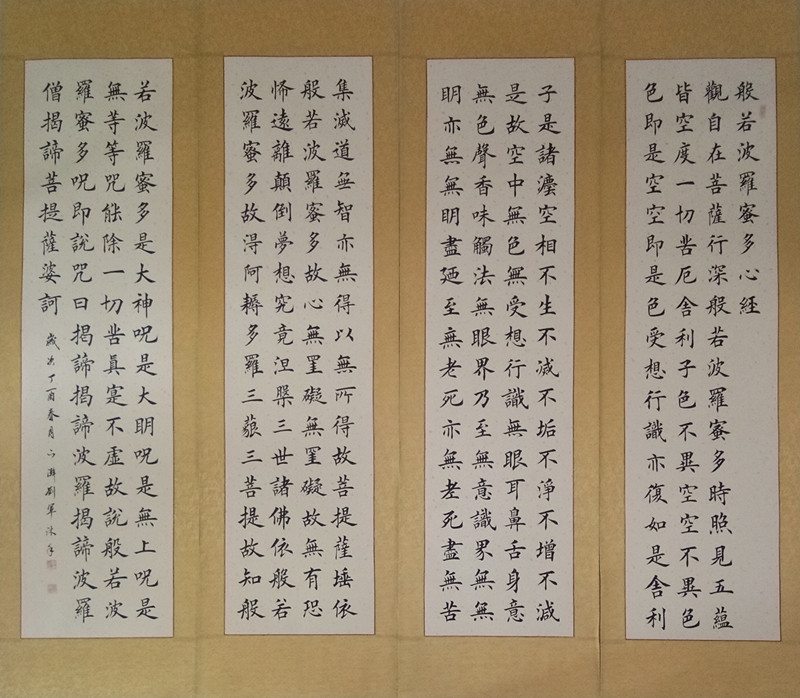 般若波羅蜜多心経
觀自在菩薩行深般若波羅蜜多時照見五蘊
皆空度一切苦厄舎利子色不異空空不異色
色即是空空即是色受想行識亦復如是舎利
子是諸灋空相不生不滅不垢不淨不增不減
是故空中無色無受想行識無眼耳鼻舌身意
無色聲香味觸法無眼界乃至無意識界無無
眀亦無無眀盡廼至無老死亦無老死盡無苦
集滅道無智亦無得以無所得故菩提薩埵依
般若波羅蜜多故心無罣礙無罣礙故無有恐
怖遠離顛倒夢想究竟涅槃三世諸佛依般若
波羅蜜多故得阿耨多羅三藐三菩提故知般
若波羅蜜多是大神咒是大眀咒是無上咒是
無等等咒能除一切苦真寔不虛故說般若波
羅蜜多咒即說咒曰揭諦揭諦波羅揭諦波羅
僧揭諦菩提薩婆訶
歲次丁酉春月劉軍沐手